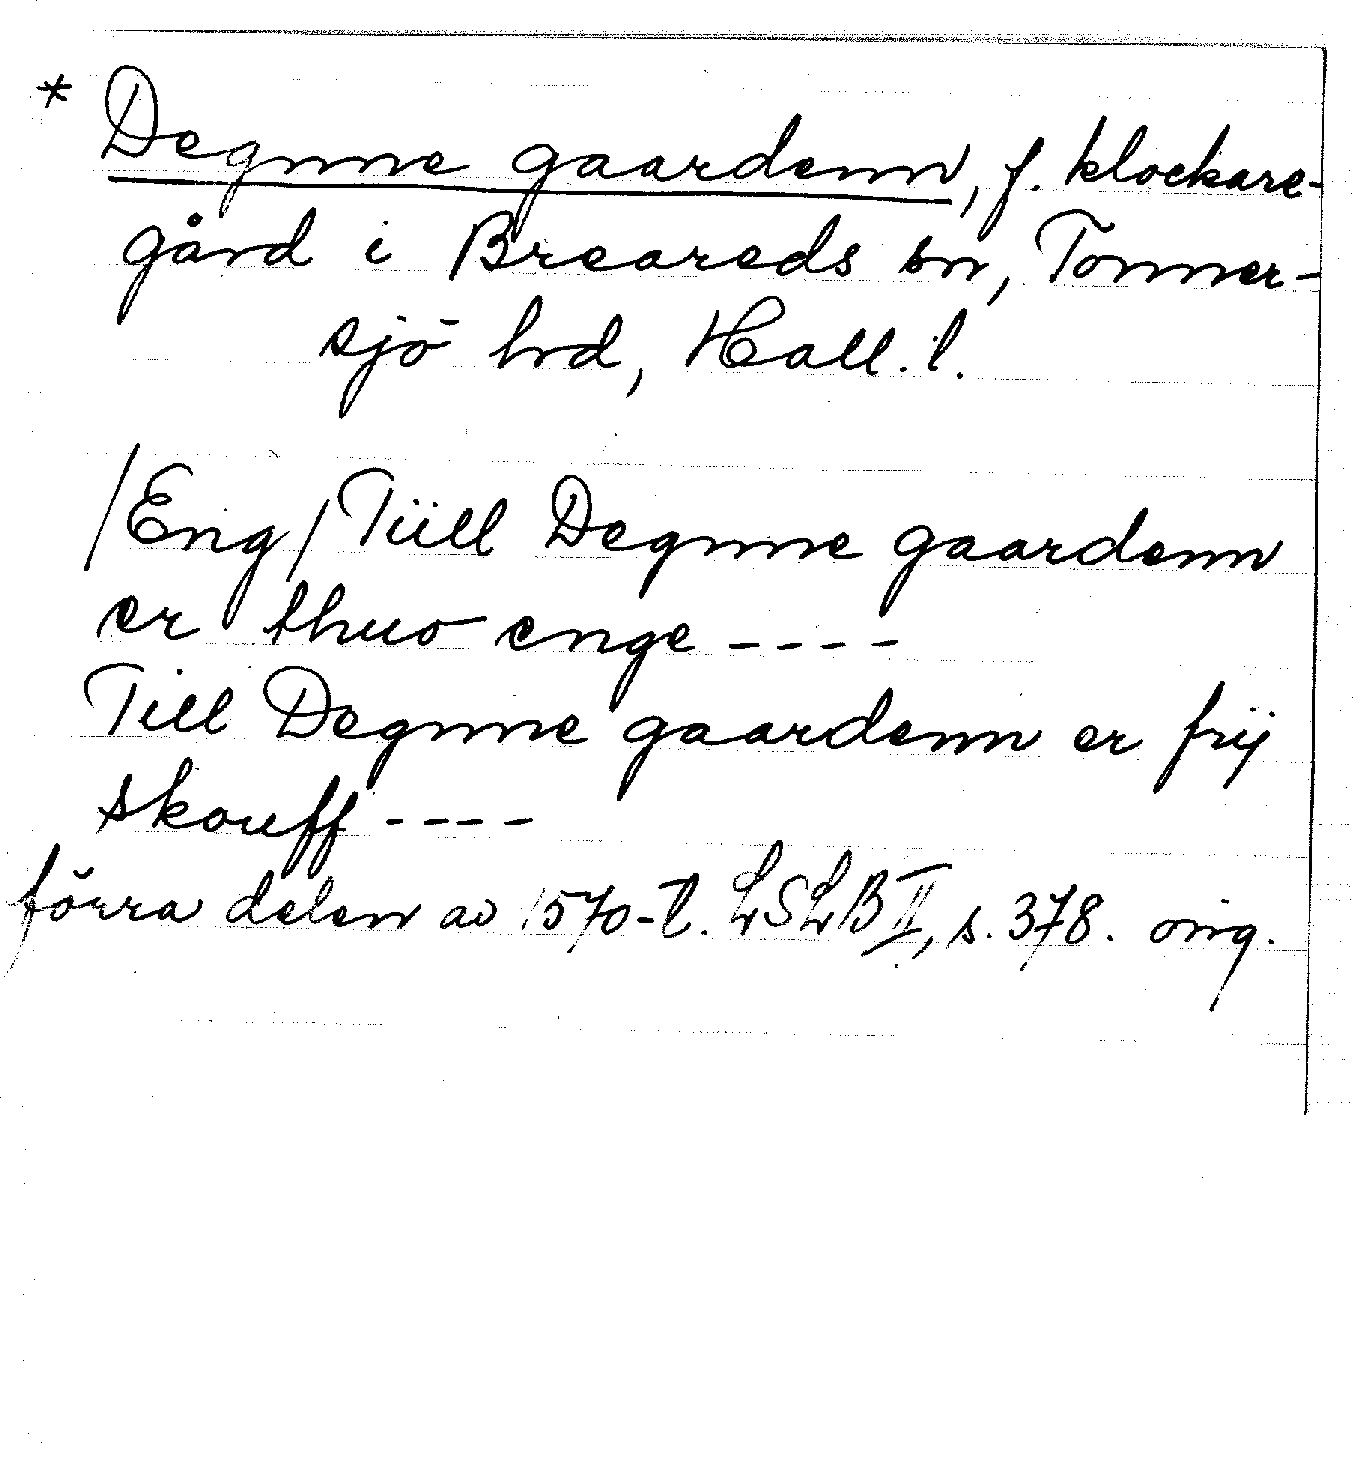 * Degnne gaardenn, f. klockare-
gård i Breareds sn, Tönner-
sjö hrd, Hall. l.
/Eng/ Tiill Degnne gaardenn
er thuo enge ----
Till Degnne gaardenn er frij
skouff ----
förra delen av 1570-t. LSLB II, s. 378. orig.